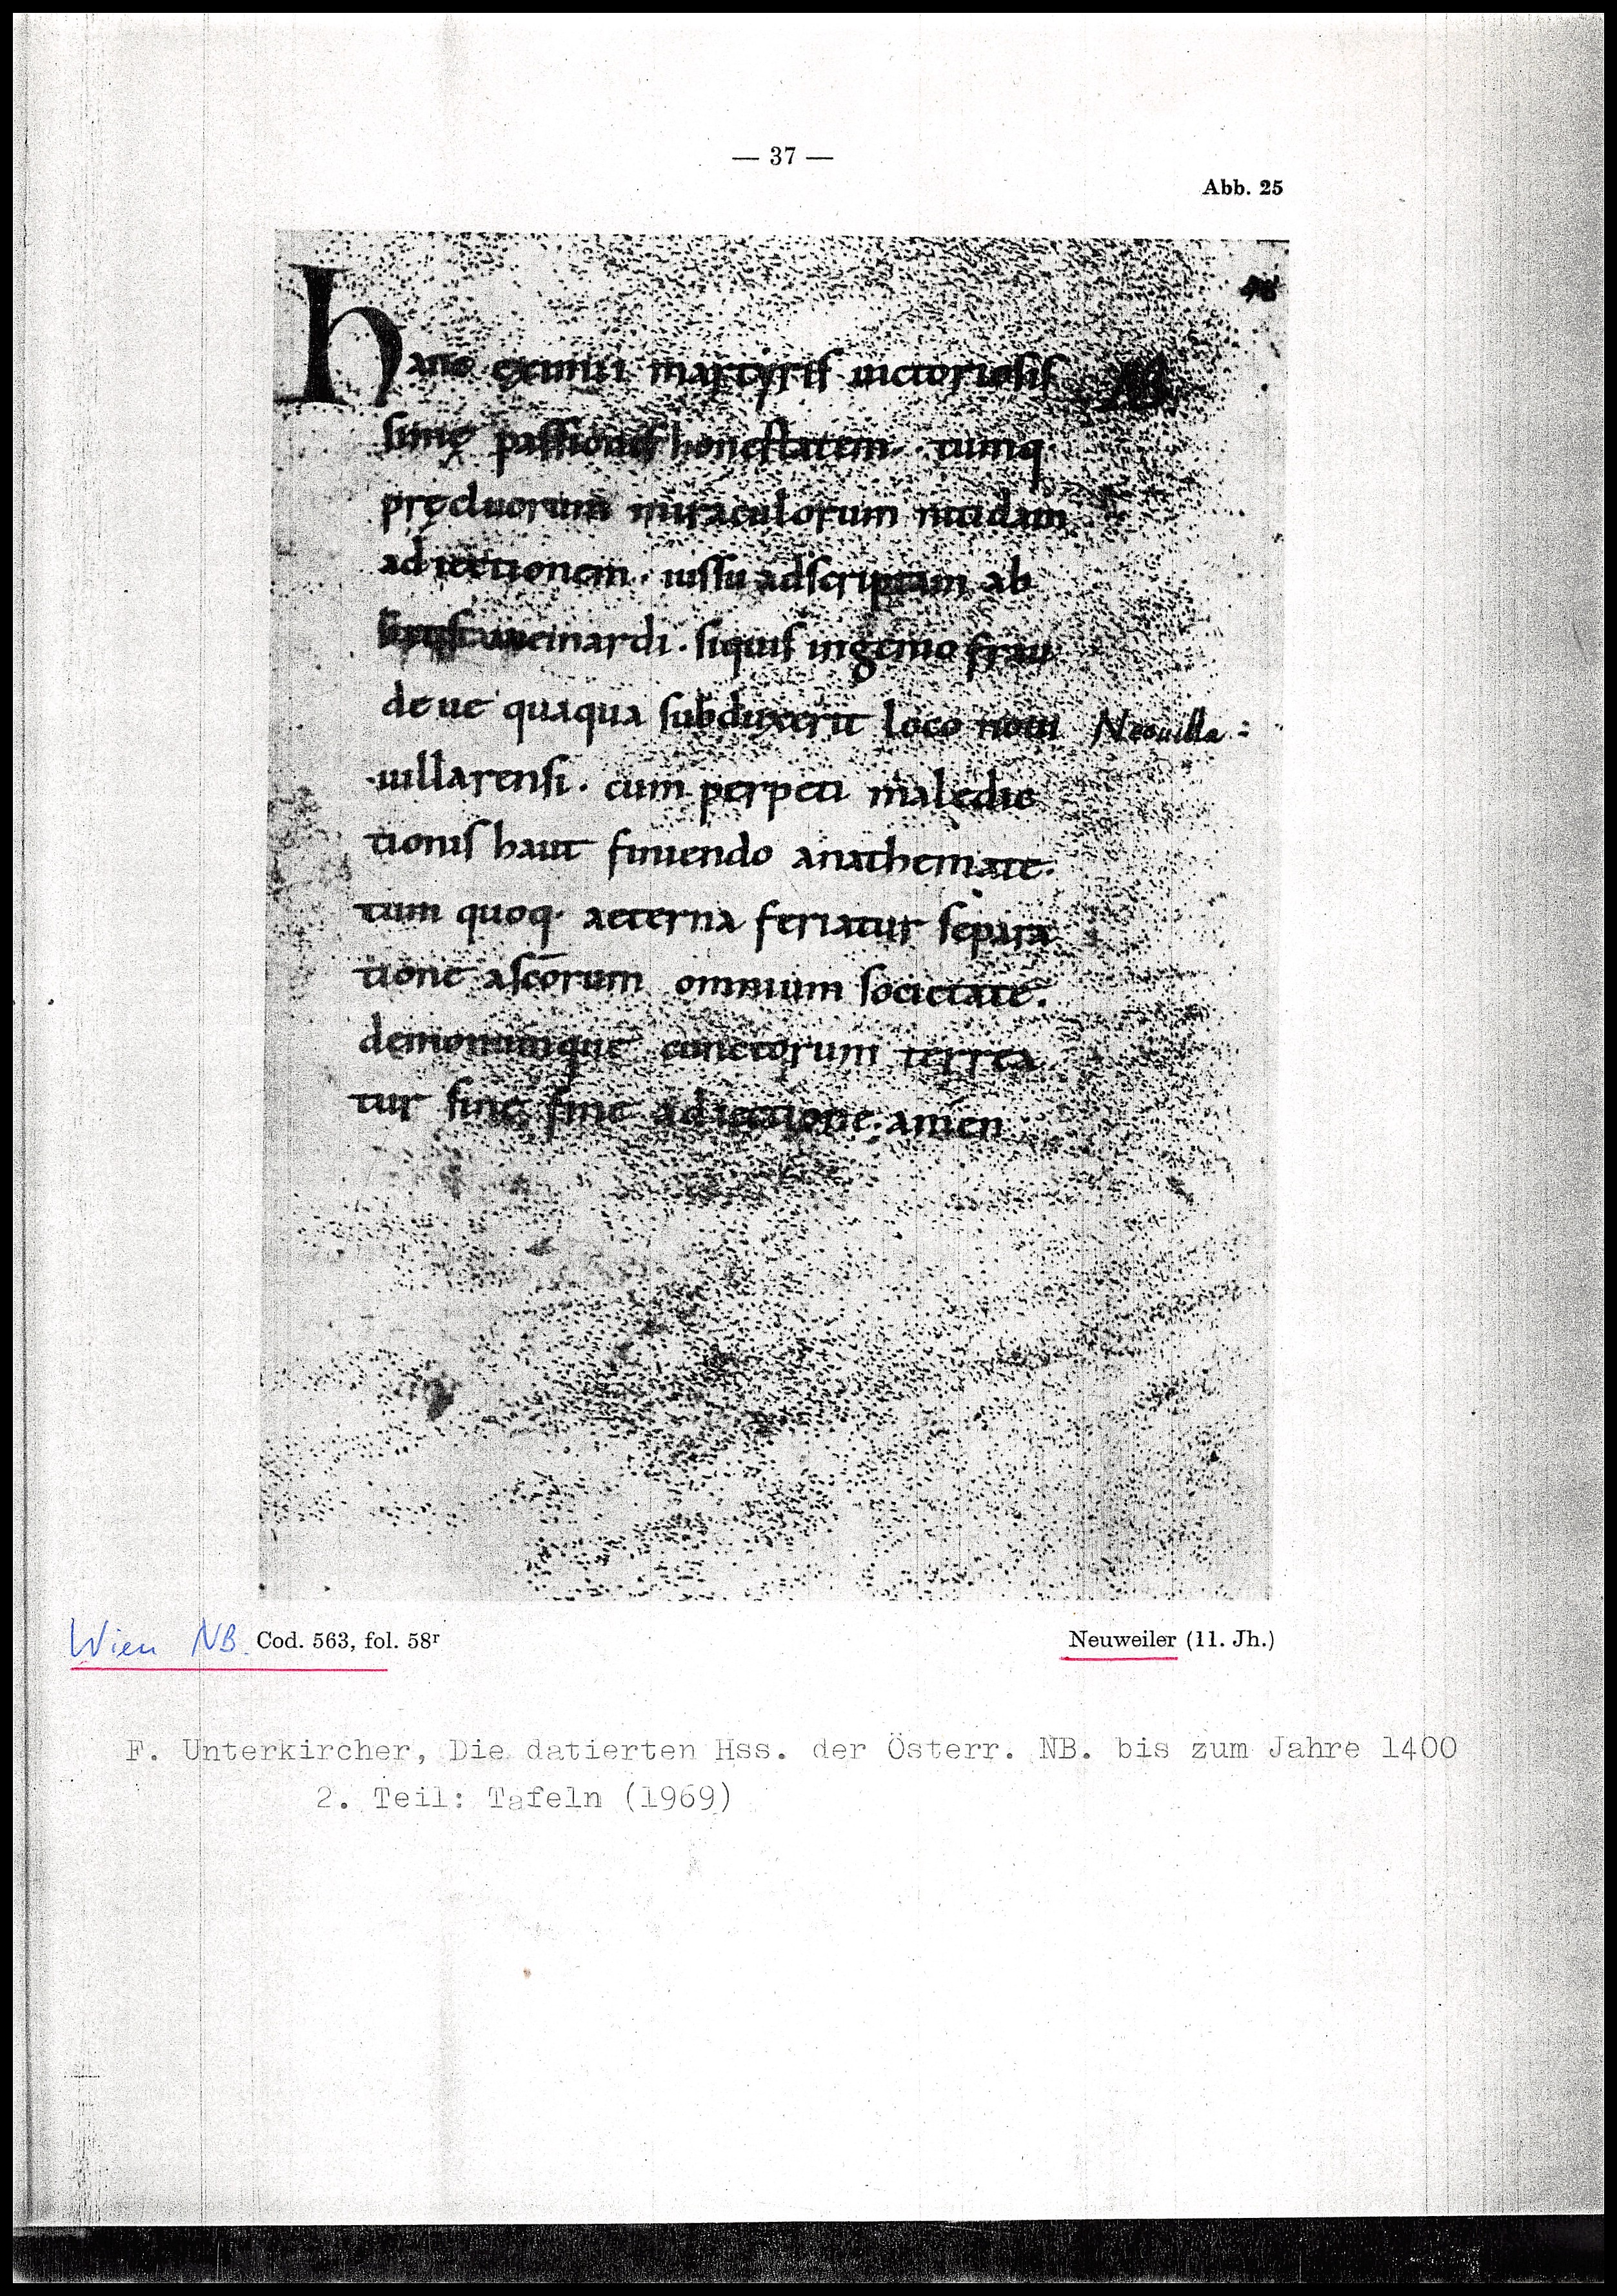 — 37 —
Abb. 25
hanc eximii martyris uictoriosis
simę passionis honestatem. tumq·
pręcluorum miraculorum nitidam
adiectionem. iussu adscriptam ab
uueinardi. siquis ingenio frau
deue quaqua subduxerit loco noui
Neouilla:
uillarensi. cum perpeti maledic
tionis haut finiendo anathemate.
tum quoq· aeterna feriatur separa
tione a scōrum omnium societate.
demonumque cunctorum terrea
tur sine fine adiectione. amen
Wien NB. Cod. 563, fol. 58r
Neuweiler (11. Jh.)
F. Unterkircher, Die datierten Hss. der Österr. NB. bis zum Jahre 1400
2. Teil: Tafeln (1969)